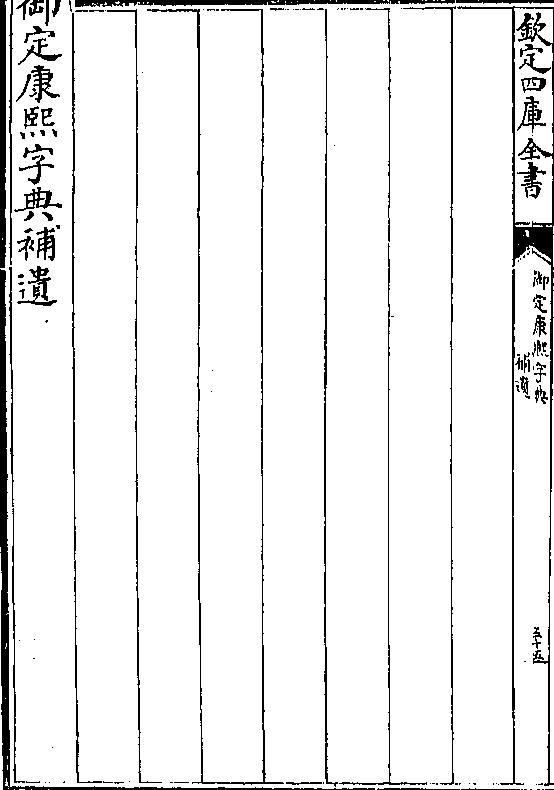 欽定四庫全書
御定康熙字典
補遺
五十五
御定康熙字典補遺